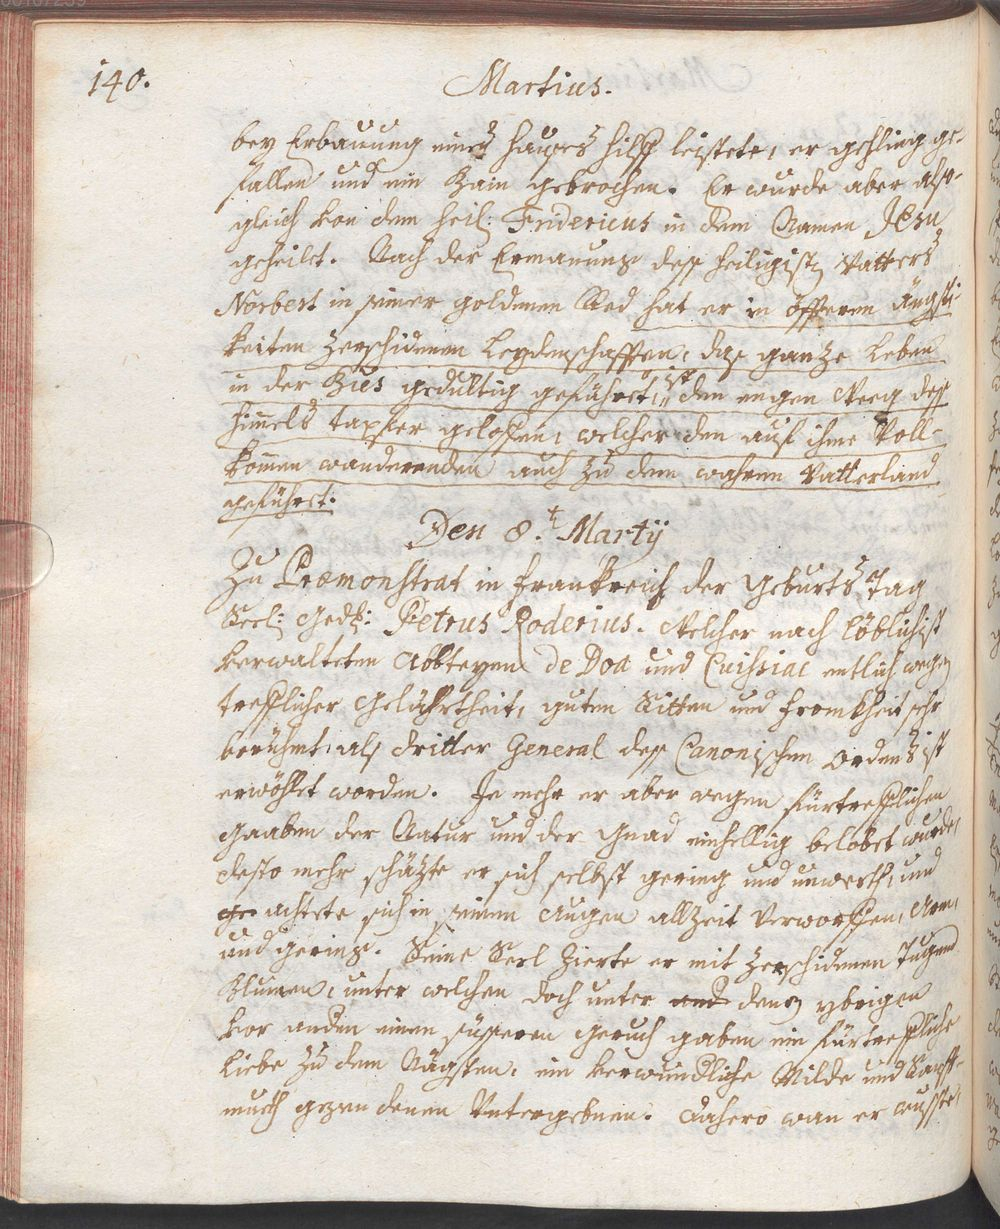 140.
Martius.
bey Erbauung eines Hauses hilff leistete, er gehling ge-
fallen und ein Bain gebrochen. Er wurde aber also-
gleich von dem heil: Fridericus in dem Namen Jesu
geheilet. Nach der Ermanung dess heiligist Vatters
Norbert in seiner goldenen Red hat er in öfferen Ängsti-
keiten zerschidenen Leydenschafften, das gantze Leben
in der Bues gedultig geführet, ist den engen Weeg dess
Himmels tapfer geloffen, welcher den auf ihme Voll-
kommen wanderenden auch zu dem wahren Vatterland
geführet.
Den 8.t Martij
Zu Præmonstrat in Frankreich der Geburts Tag
Seel: Ged: Petrus Roderius. Welcher nach löblichist
verwalteten Abbteyen de Doa und Cuissiac entlich wegen
trefflicher Gelährtheit, guten Sitten und Fromkheit sehr
berühmt, als dritter General dess Canonischen Ordens ist
erwöhlet worden. Je mehr er aber wegen fürtrefflichen
Gaaben der Natur und der Gnad einhellig belobet wurde,
desto mehr schäzte er sich selbst gering und unwerth, und
ge achtete sich in seinen Augen allzeit verworffen, Arm,
und gering. Seine Seel zierte er mit zerschidenen Tugend
Blumen, unter welchen doch unter and denen ybrigen
vor anden einen süsseren geruch gaben ein fürtreffliche
Liebe zu dem Nägsten, ein verwundliche Milde und Sanfft-
muth gegen denen Untergebnen. Dahero wan er wusste,